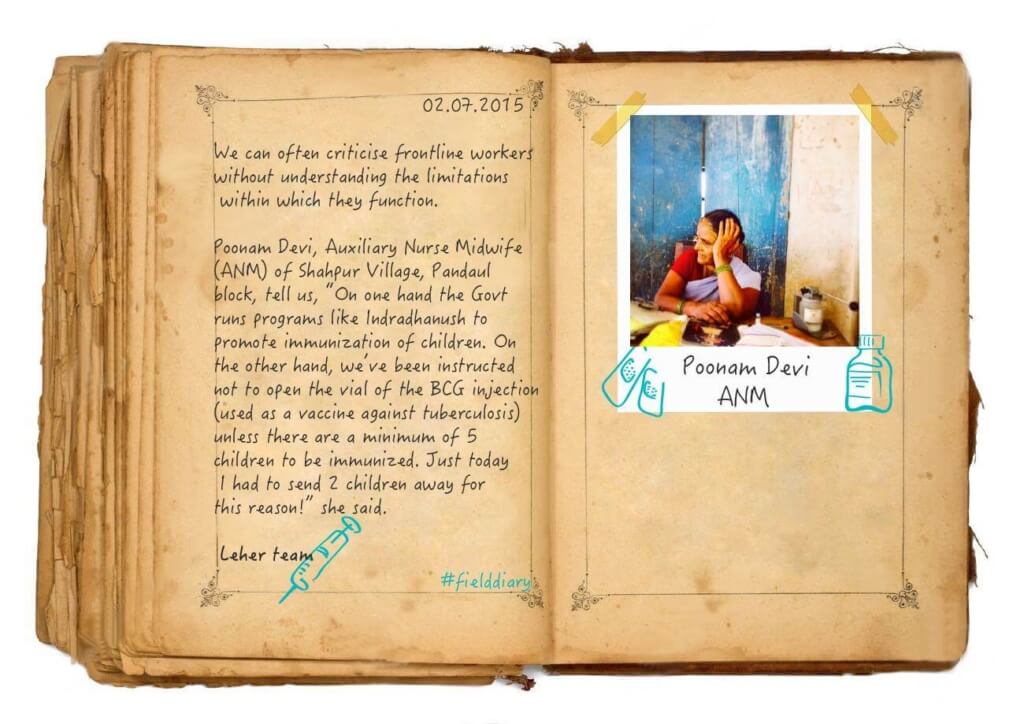 02.07.2015
We can often criticise frontline workers
without understanding the limitations
within which they function.
Poonam Devi, Auxiliary Nurse Midwife
(ANM) of Shahpur Village, Pandaul
block, tell us, "On one hand the Govt
runs programs like Indradhanush to
promote immunization of children. On
the other hand, we've been instructed
not to open the vial of the BCG injection
(used as a vaccine against tuberculosis)
unless there are a minimum of 5
children to be immunized. Just today
I had to send 2 children away for
this reason!" she said.
Leher team
#fielddiary
Poonam Devi
ANM